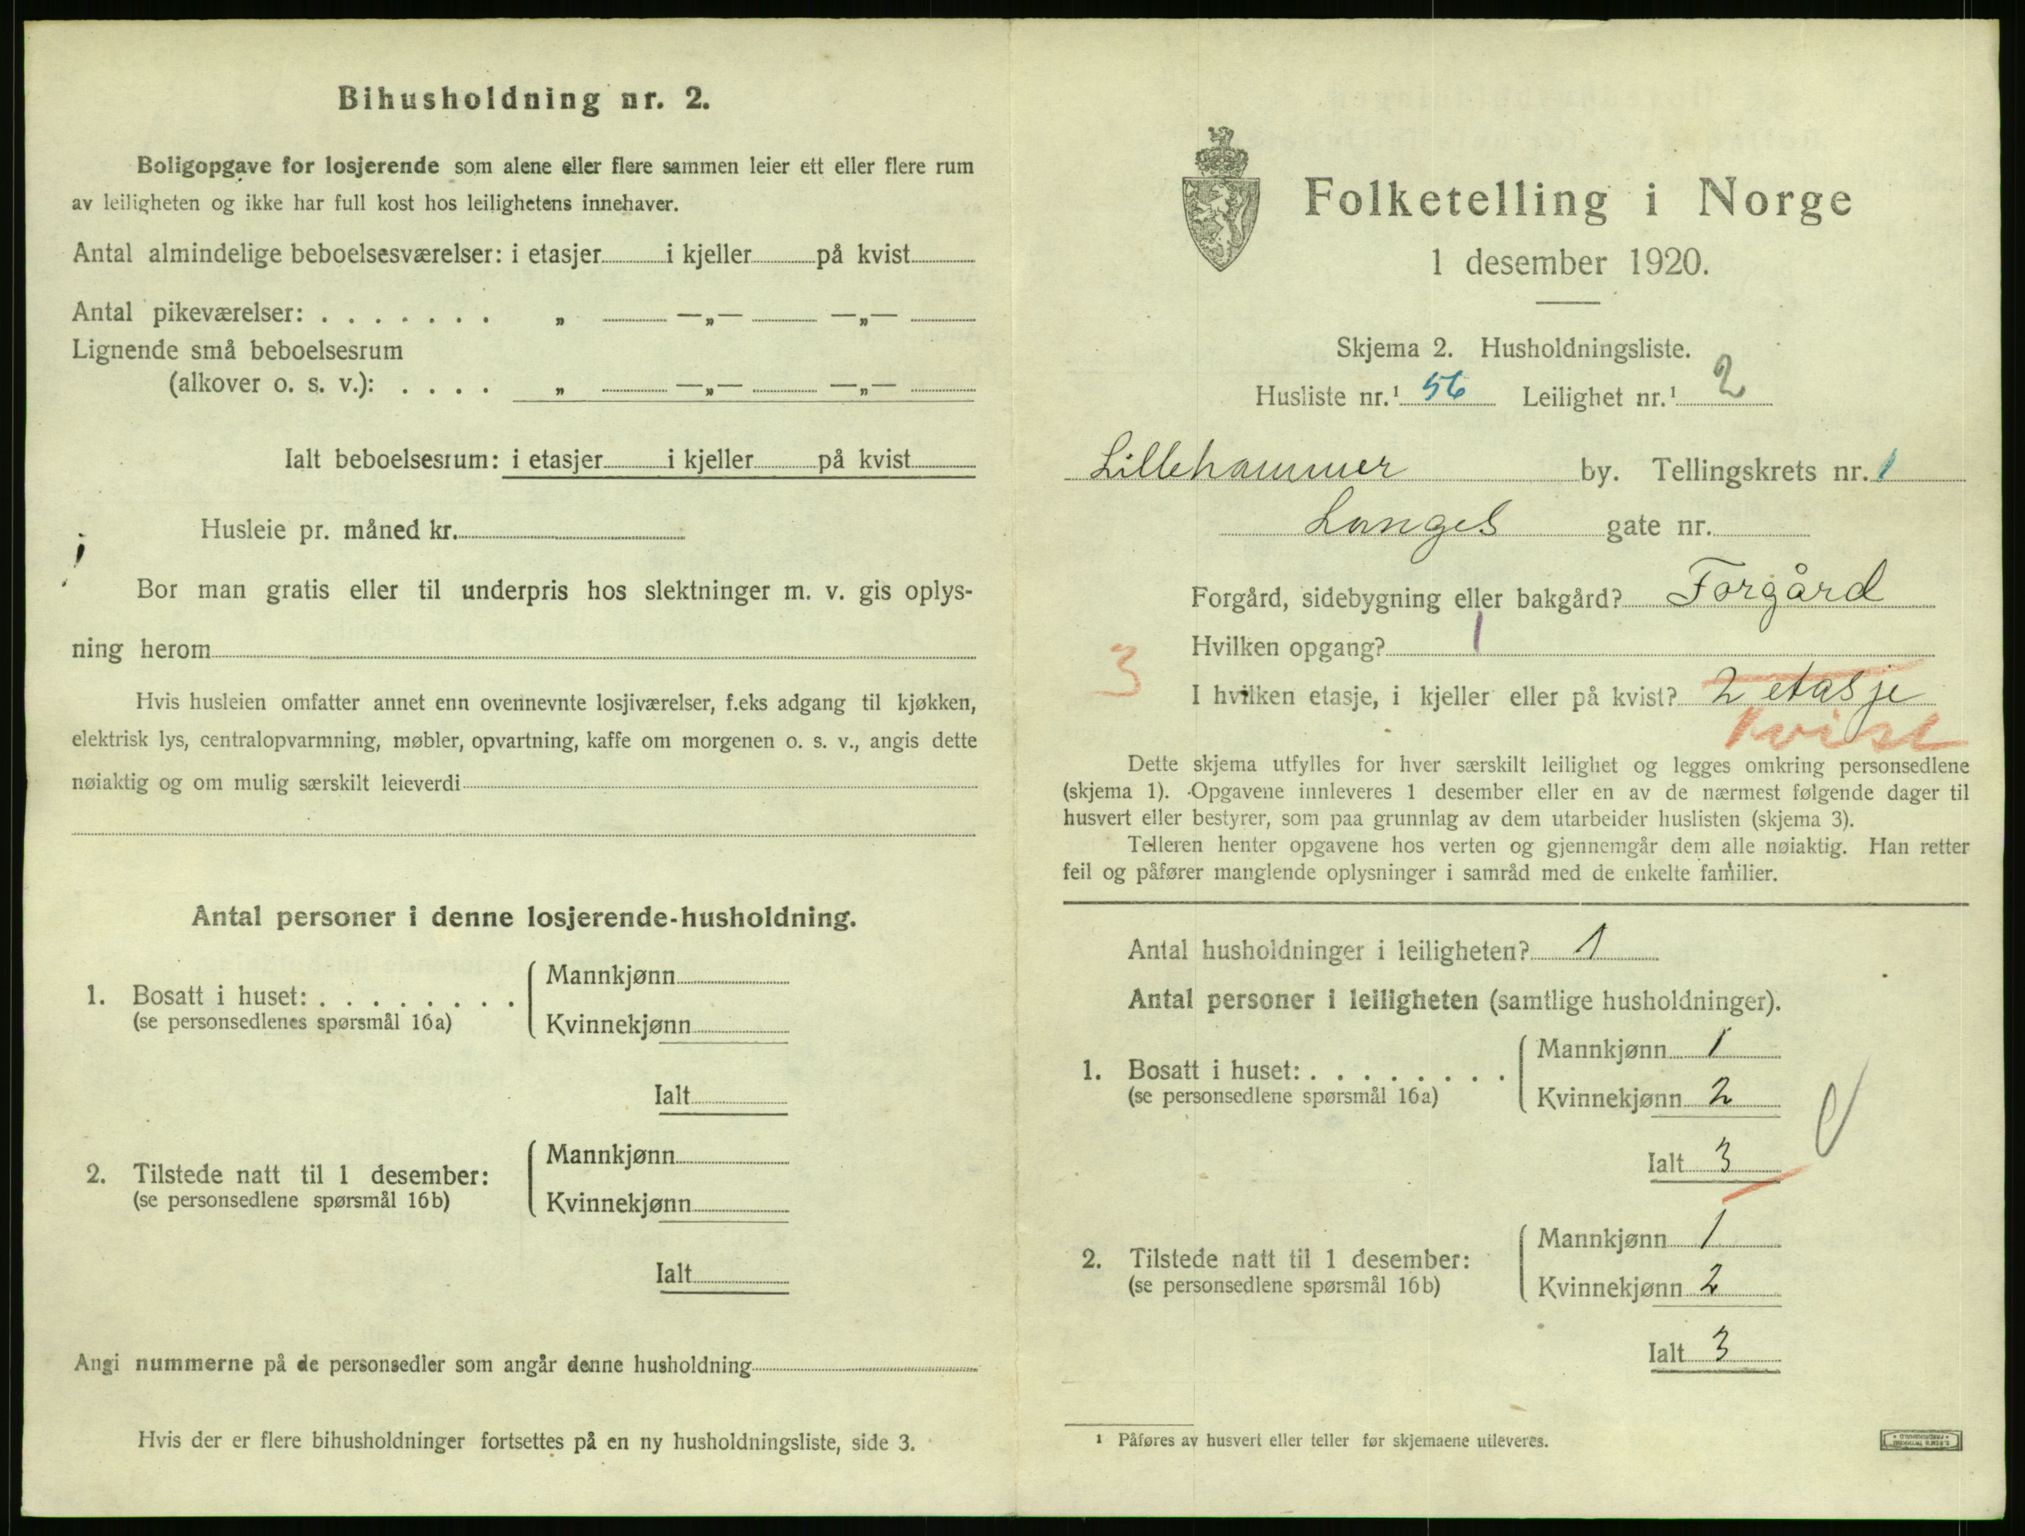 Bihusholdning nr. 2.
Boligopgave for losjerende som alene eller flere sammen leier ett eller flere rum
av leiligheten og ikke har full kost hos leilighetens innehaver.
Antal almindelige beboelsesværelser: i etasjer i kjeller på kvist
Antal pikeværelser: . . . . . . . „ —„— —„—
Lignende små beboelsesrum
(alkover o. s. v.): . . . . „ —„— —„—
Ialt beboelsesrum: i etasjer i kjeller på kvist
Husleie pr. måned kr.
Bor man gratis eller til underpris hos slektninger m. v. gis oplys-
ning herom
Hvis husleien omfatter annet enn ovennevnte losjiværelser, f.eks adgang til kjøkken,
elektrisk lys, centralopvarmning, møbler, opvartning, kaffe om morgenen o. s. v., angis dette
nøiaktig og om mulig særskilt leieverdi
Antal personer i denne losjerende-husholdning.
1. Bosatt i huset: . . . . . . . . Mannkjønn
(se personsedlenes spørsmål 16a) Kvinnekjønn
Ialt
2. Tilstede natt til 1 desember: Mannkjønn
(se personsedlene spørsmål 16b) Kvinnekjønn
Ialt
Angi nummerne på de personsedler som angår denne husholdning
Hvis der er flere bihusholdninger fortsettes på en ny husholdningsliste, side 3.
Folketelling i Norge
1 desember 1920.
Skjema 2. Husholdningsliste.
Husliste nr.¹ 56 Leilighet nr.¹ 2
Lillehammer by. Tellingskrets nr. 1
Langes gate nr.
Forgård, sidebygning eller bakgård? Forgård
Hvilken opgang? 1
3 I hvilken etasje, i kjeller eller på kvist? 2 etasje
Kvist
Dette skjema utfylles for hver særskilt leilighet og legges omkring personsedlene
(skjema 1). Opgavene innleveres 1 desember eller en av de nærmest følgende dager til
husvert eller bestyrer, som paa grunnlag av dem utarbeider huslisten (skjema 3).
Telleren henter opgavene hos verten og gjennemgår dem alle nøiaktig. Han retter
feil og påfører manglende oplysninger i samråd med de enkelte familier.
Antal husholdninger i leiligheten? 1
Antal personer i leiligheten (samtlige husholdninger).
1. Bosatt i huset: . . . . . . . . Mannkjønn 1
(se personsedlene spørsmål 16a) Kvinnekjønn 2
Ialt 3
2. Tilstede natt til 1 desember: Mannkjønn 1
(se personsedlene spørsmål 16b) Kvinnekjønn 2
Ialt 3
¹ Påføres av husvert eller teller før skjemaene utleveres.